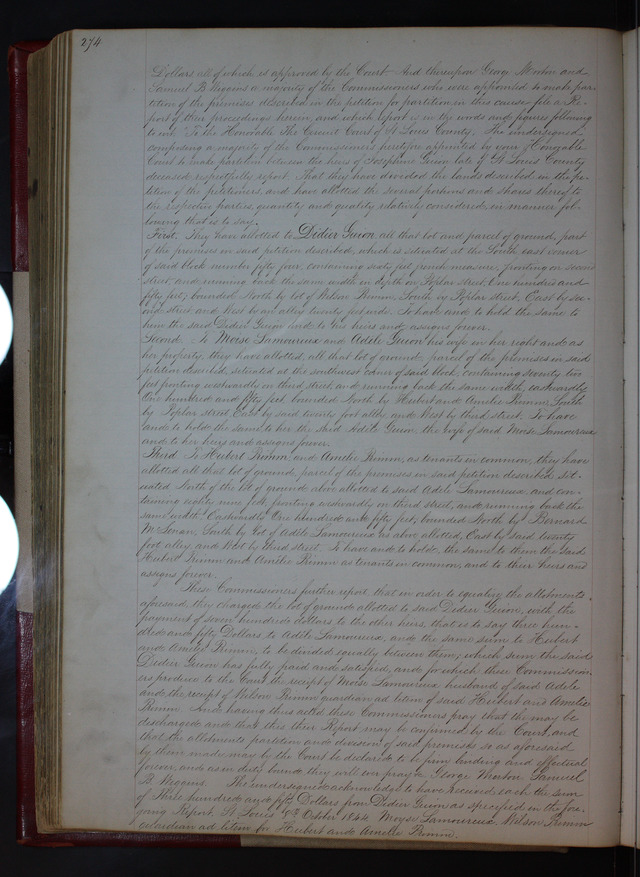 274
Dollars, all of which is approved by the Court. And thereupon George Morton and
Samuel B. Wiggins a majority of the Commissioners who were appointed to make par-
tition of the premises described in the petition for partition in this cause file a Re-
port of their proceedings herein, and which report is in the words and figures following
to wit: "To the Honorable The Circuit Court of St Louis County. The undersigned
composing a majority of the Commissioners heretofore appointed by your Honorable
Court to make partition between the heirs of Josephine Guion late of St Louis County
deceased, respectfully report. That they have divided the lands described in the pe-
tition of the petitioners, and have allotted the several portions and shares thereof to
the respective parties, quantity and quality relatively considered, in manner fol-
lowing that is to say.
First. They have allotted to Didier Guion all that lot and parcel of ground, part
of the premises in said petition described, which is situated at the South east corner
of said block number fifty four, containing sixty feet french measure, fronting on second
street and running back the same width in depth on Poplar street, One hundred and
fifty feet; bounded North by lot of Wilson Primm, South by Poplar street, East by sec-
ond street and West by an alley twenty feet wide. To have and to hold the same to
him the said Didier Guion and to his heirs and assigns forever.
Second. To Moise Lamoureux and Adele Guion his wife in her right and as
her property, they have allotted, all that lot of ground, parcel of the premises in said
petition described, situated at the southwest corner of said block, containing seventy two
feet fronting westwardly on third street and running back the same width, eastwardly
One hundred and fifty feet bounded North by Hubert and Amelie Primm, South
by Poplar street East by said twenty foot alley and West by third street. To have
and to hold the same to her the said Adele Guion, the wife of said Moise Lamoureux
and to her heirs and assigns forever.
Third. To Hubert Primm and Amelie Primm, as tenants in common, they have
allotted all that lot of ground, parcel of the premises in said petition described, sit-
uated North of the lot of ground above allotted to said Adele Lamoureux and con-
taining eighty nine feet, fronting westwardly on third street, and running back the
same width Eastwardly One hundred and fifty feet, bounded North by Bernard
South by lot of Adele Lamoureux as above allotted, East by said twenty
foot alley and West by third street. To have and to hold, the same to them the said
Hubert Primm and Amelie Primm as tenants in common, and to their heirs and
assigns forever.
These Commissioners further report that in order to equalize the allotments
aforesaid, they charged the lot of ground allotted to said Didier Guion, with the
payment of seven hundred dollars to the other heirs, that is to say three hun-
dred and fifty Dollars to Adele Lamoureux, and the same sum to Hubert
and Amelie Primm, to be divided equally between them; which sum the said
Didier Guion has fully paid and satisfied, and for which these Commission-
ers produce to the Court the receipt of Moise Lamoureux husband of said Adele
and the receipt of Wilson Primm guardian ad litem of said Hubert and Amelie
Primm. And having thus acted these Commissioners pray that the may be
discharged and that this their Report may be confirmed by the Court, and
that the allotments partition and division of said premises so as aforesaid
by them made, may by the Court be declared to be firm binding and effectual
forever, and as in duty bound they will ever pray &c George Morton Samuel
B. Wiggins. The undersigned acknowledge to have received each the sum
of Three hundred and fifty Dollars from Didier Guion as specified in the fore-
going Report. St Louis October 1844. Moyse Lamoureux. Wilson Primm
Guardian ad litem for Hubert and Amelie Primm.